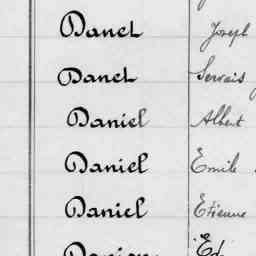 Danel Joseph
Danel Servais
Daniel Albert
Daniel Emile
Daniel Etienne
Ed.